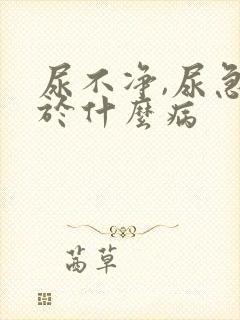 尿不净,尿急
於什麼病
茜草